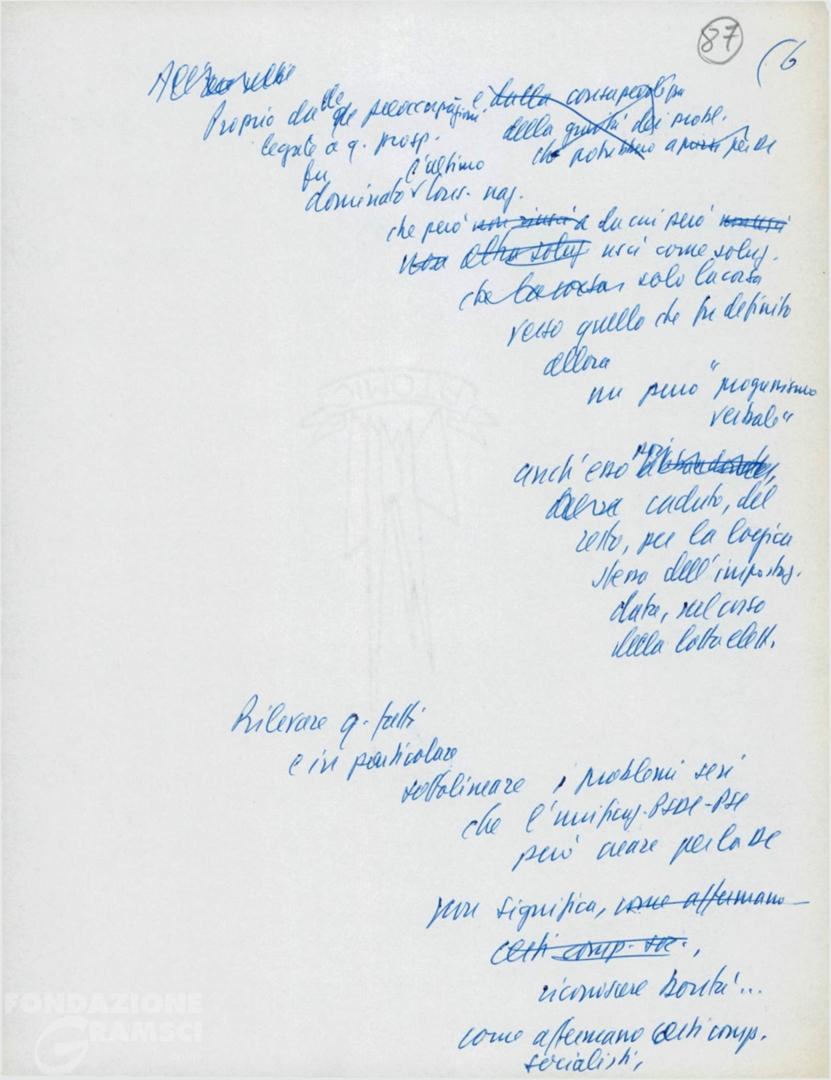 87
(6
Proprio dalle preoccupazioni e dalla consapevolezza
legate a q. prosp. della gravità dei probl.
fu l'ultimo che potrebbero aprirsi per DC
dominato Cons. naz.
che però non riuscì a da cui però non uscì
non altra soluz uscì come soluz.
che la corsa solo la corsa
verso quello che fu definito
allora
un puro "progressismo
verbale"
anch'esso poi
caduto, del
resto, per la logica
stessa dell'impostaz.
data, nel corso
della lotta elett.
Rilevare q. fatti
e in particolare
sottolineare i problemi seri
che l'unificaz. PSDI-PSI
può creare per la DC
non significa, come affermano
certi comp. soc.,
riconoscere bontà...
come affermano certi comp.
socialisti,
FONDAZIONE
GRAMSCI